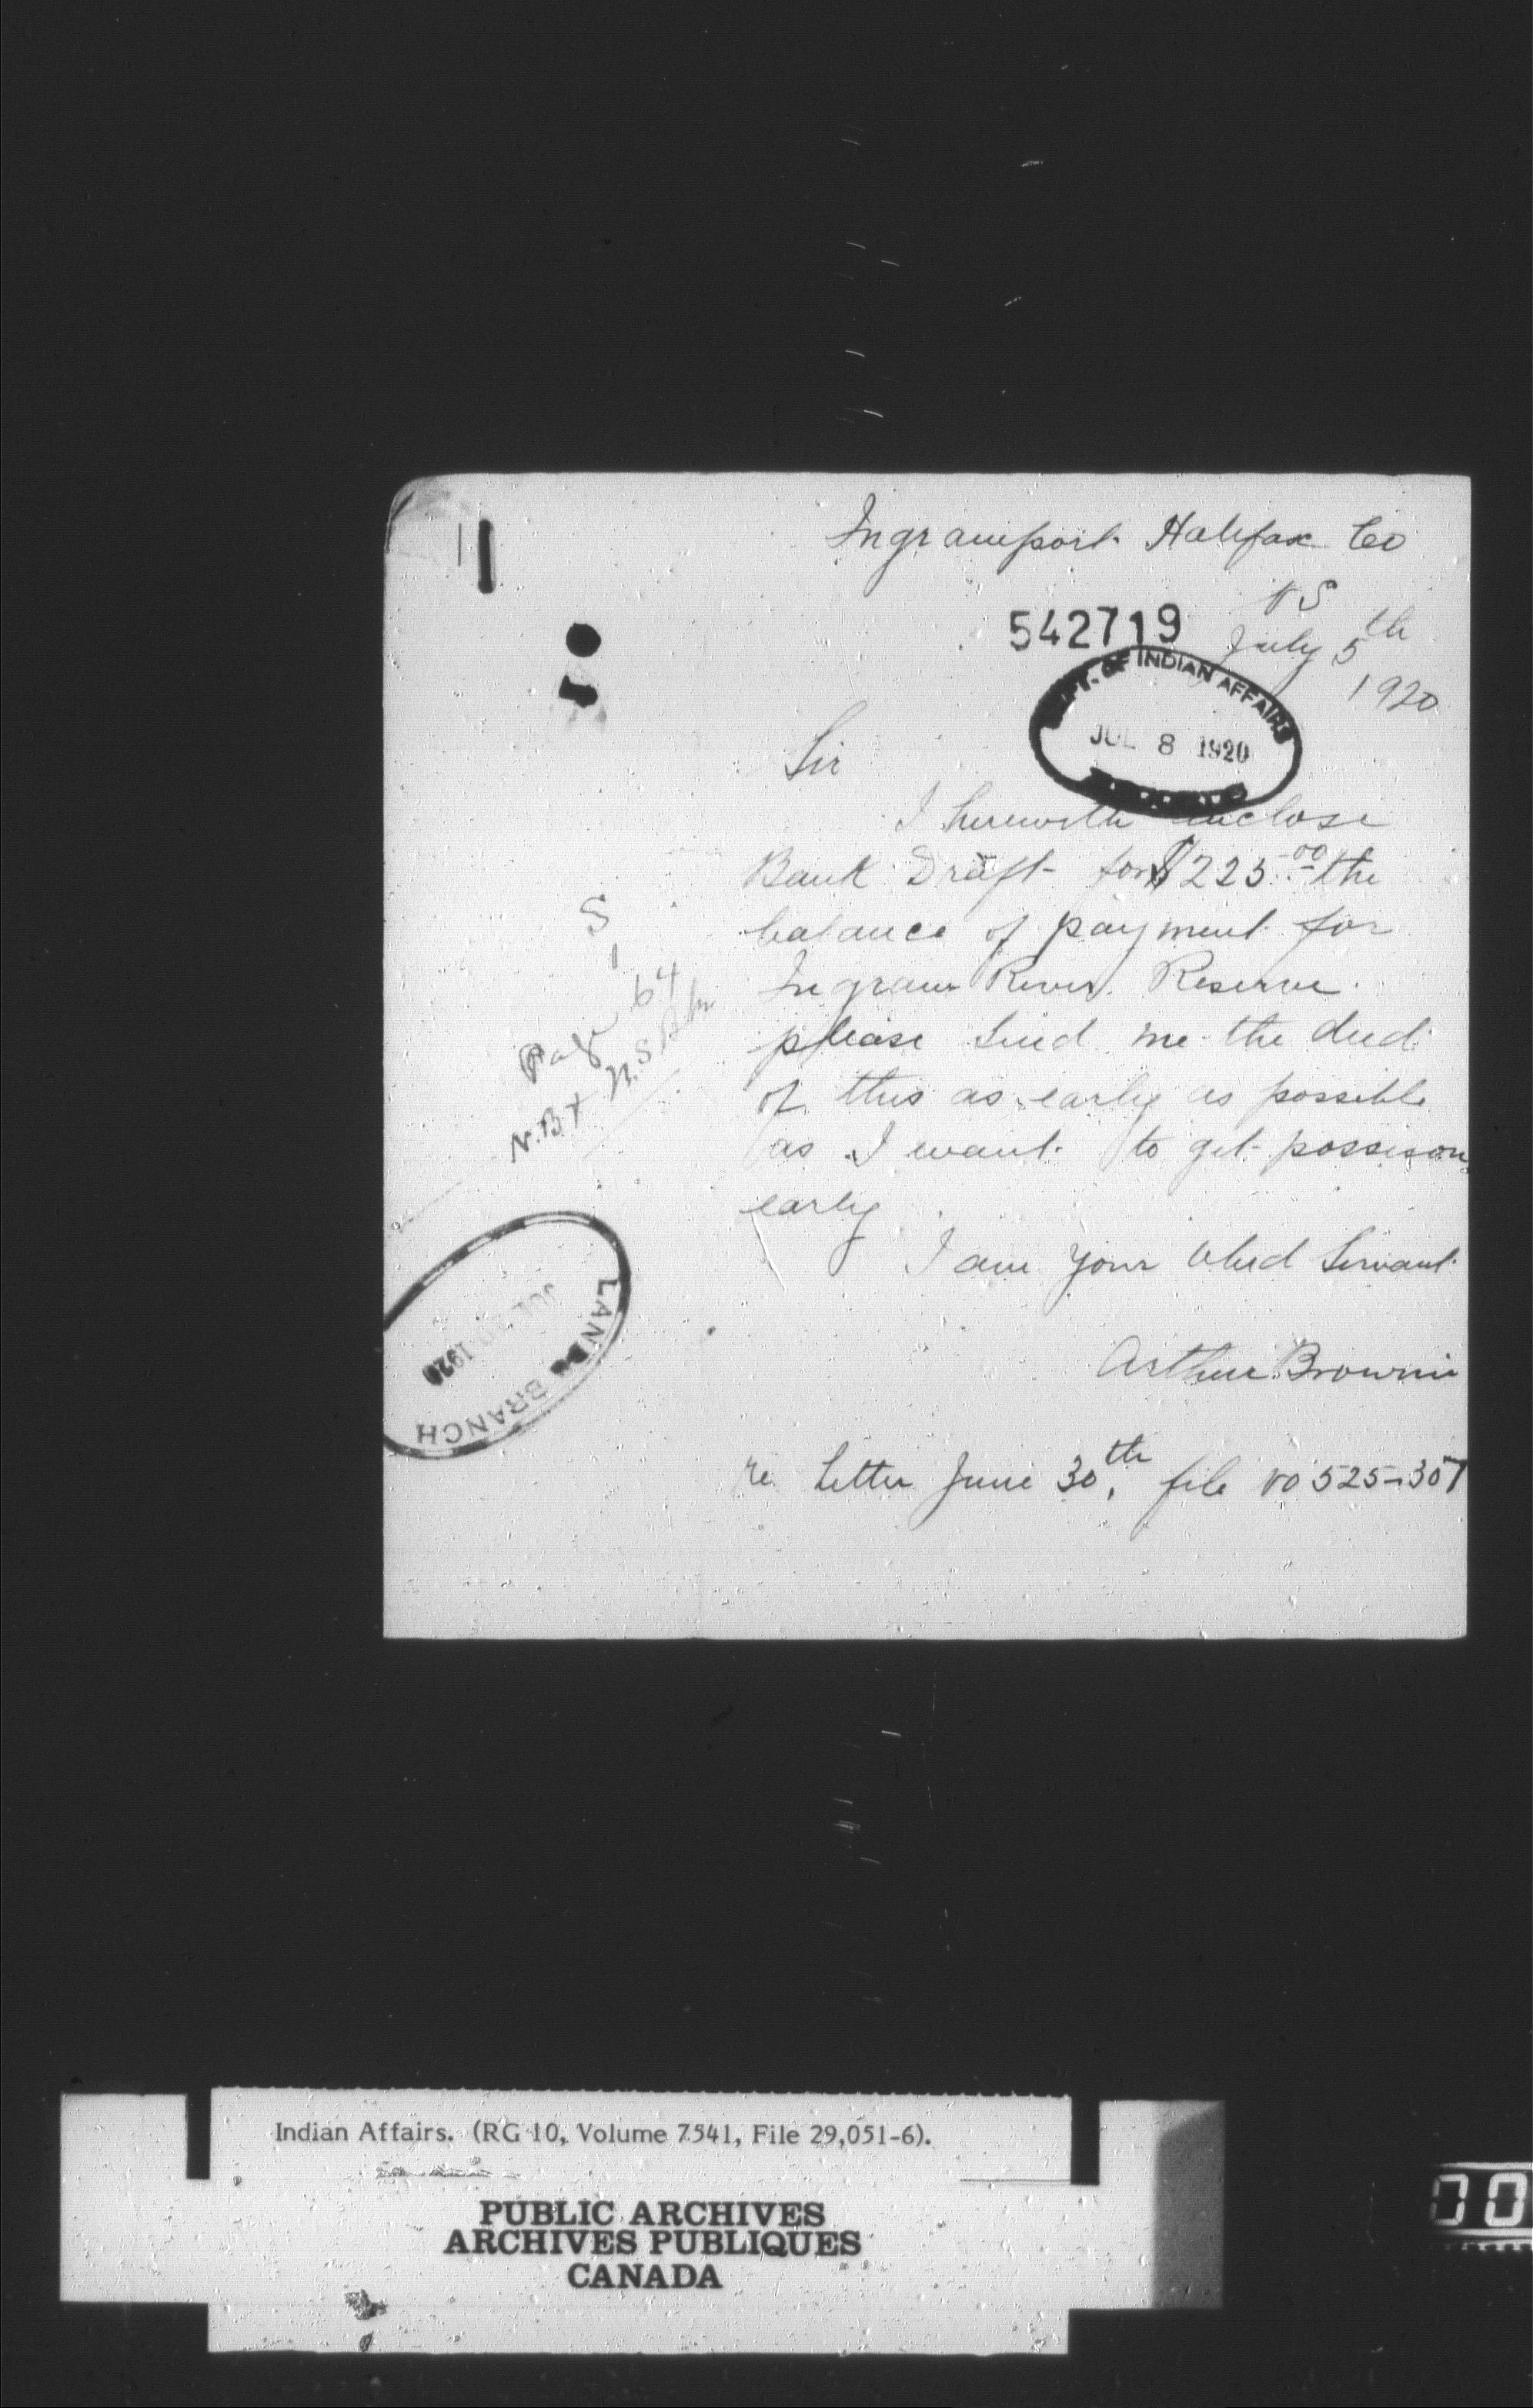 Ingramport Halifax Co
NS
542719
July 5th
1920
DEPT. OF INDIAN AFFAIRS
JUL 8 1920
Sir
I herewith enclose
Bank Draft for $225.00 the
balance of payment for
Ingram River Reserve.
please send me the deed
of this as early as possible
as I want to get possison
early
I am your obed Servant
Arthur Brownie
re letter June 30th, file no 525-307
S
1
Page 64
N.B &
N.S.
LANDS BRANCH
JUL 1920
Indian Affairs. (RG 10, Volume 7541, File 29,051-6).
PUBLIC ARCHIVES
ARCHIVES PUBLIQUES
CANADA
00